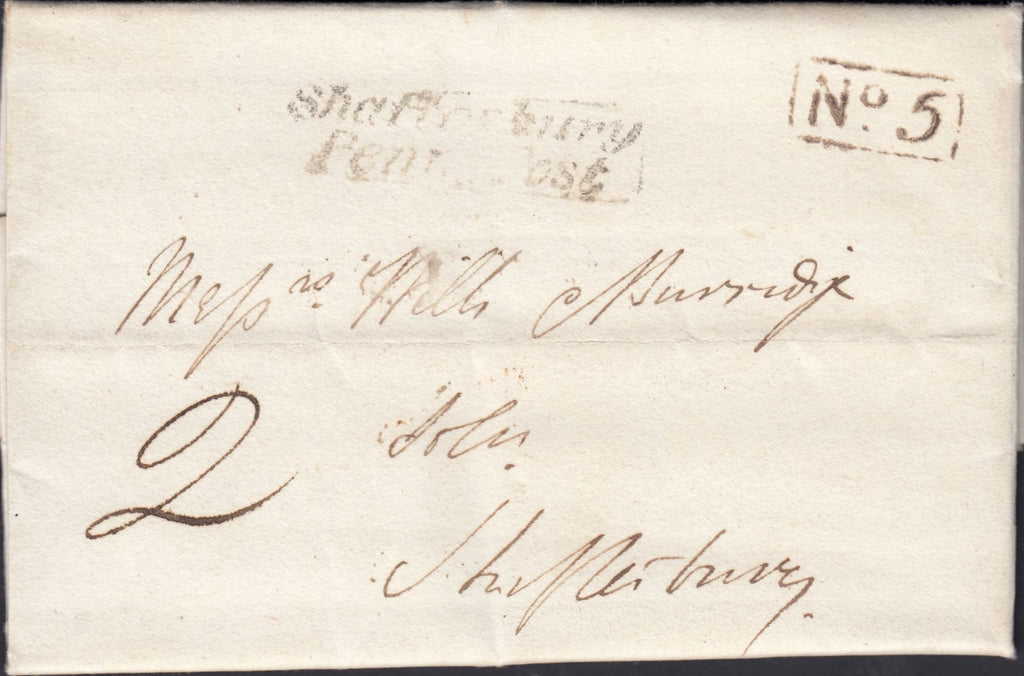 Shaftesbury
Penny Post
No. 5
Messrs. Wills & Burridge
2
Solrs.
Shaftesbury.